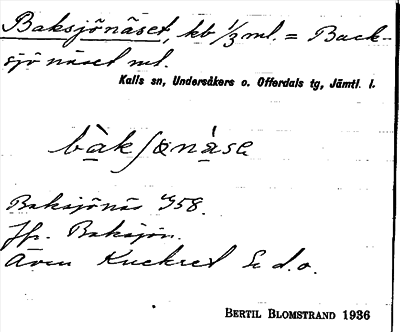 Baksjönäset, kb 1/3 ml. = Back-
sjönäset ml.
Kalls sn, Undersåkers o. Offerdals tg, Jämtl. l.
bàkʃønàsa
Baksjönäs 58.
Jfr. Baksjön.
Även Kuckret Se d.o.
BERTIL BLOMSTRAND 1936